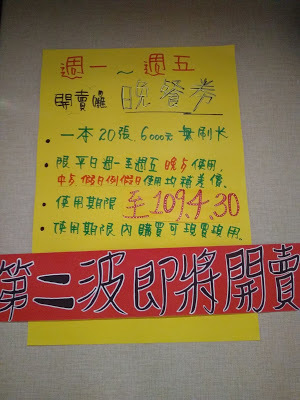 週一～週五
開賣囉 晚餐券
• 一本20張 6000元 無刷卡
• 限平日週一至週五晚方使用.
中午.假日例假日使用均補差價.
• 使用期限 至109.4.30
• 使用期限內購買可現買現用.
第二波即將開賣